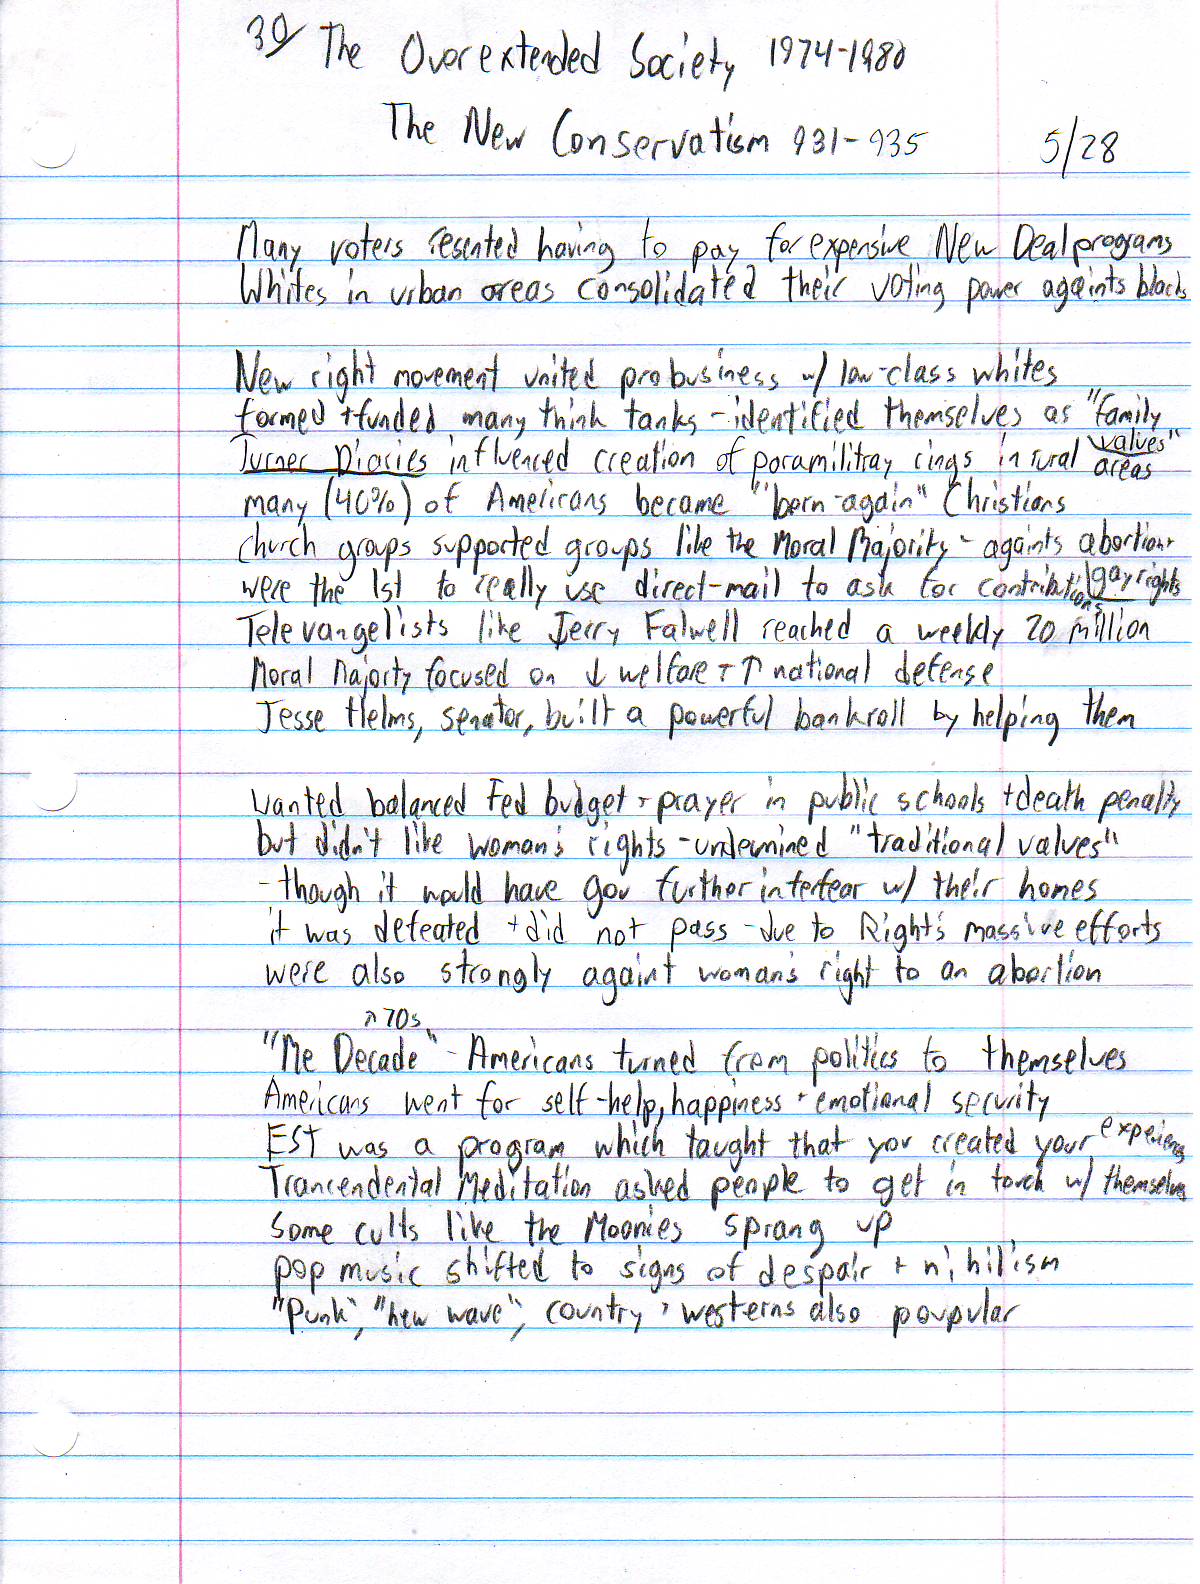 30/ The Overextended Society 1974-1980
The New Conservatism 931-935 5/28
Many voters resented having to pay for expensive New Deal programs
Whites in urban areas consolidated their voting power againts blacks
New right movement united probusiness w/ low-class whites
formed + funded many think tanks - identified themselves as "family values"
Turner Diaries influenced creation of paramilitray rings in rural areas
many (40%) of Americans became "born-again" Christians
church groups supported groups like the Moral Majority - againts abortion + gay rights
were the 1st to really use direct-mail to ask for contributions
Televangelists like Jerry Falwell reached a weekly 20 million
Moral Majorty focused on ↓ welfare + ↑ national defense
Jesse Helms, senator, built a powerful bankroll by helping them
Wanted balanced Fed budget + prayer in public schools + death penalty
but didn't like woman's rights - undermined "traditional values"
- though it would have gov further interfear w/ their homes
it was defeated + did not pass - due to Right's massive efforts
were also strongly againt woman's right to an abortion
70s
"Me Decade" - Americans turned from politics to themselves
Americans went for self-help, happiness + emotional security
EST was a program which taught that you created your experiences
Trancendental Meditation asked people to get in touch w/ themselves
Some cults like the Moonies sprang up
pop music shifted to signs of despair + nihilism
"Punk", "new wave", country + westerns also poupular